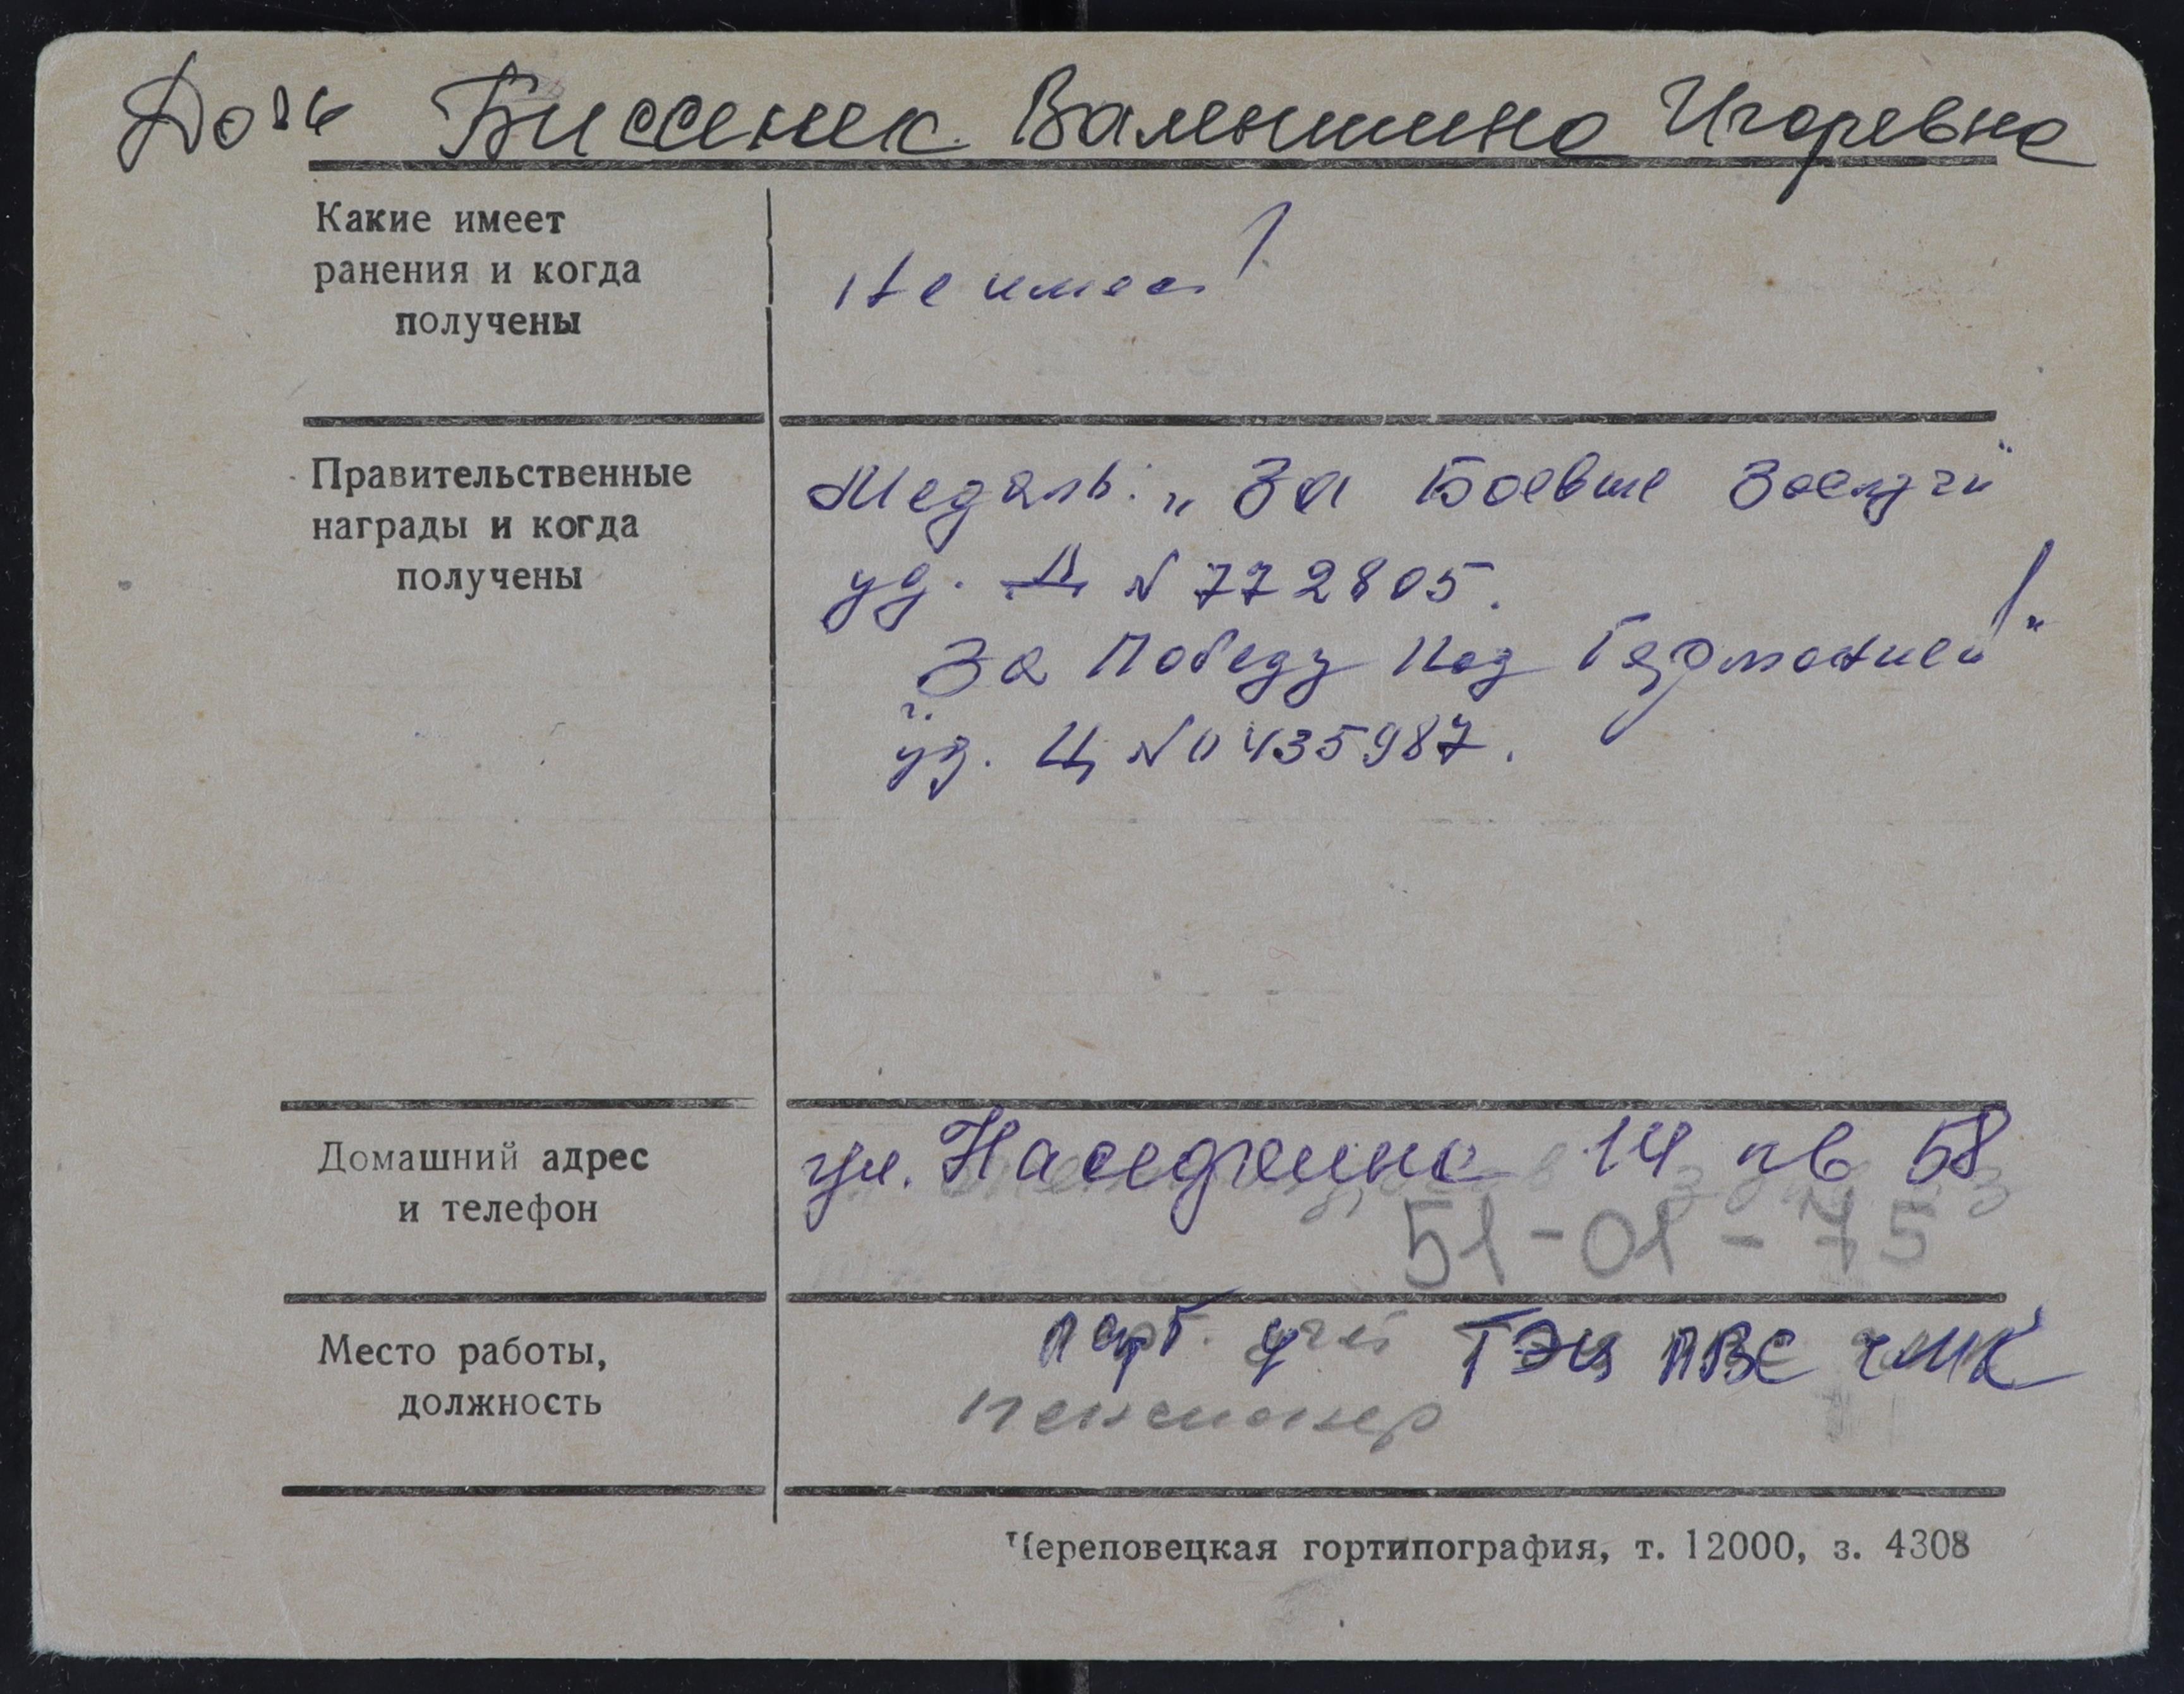 Дочь Биссенек Валентина Игоревна
Какие имеет
ранения и когда
получены
Не имеет
Правительственные
награды и когда
получены
Медаль: „За Боевые Заслуги"
уд. Д N 772805.
„За Победу Над Германией"
уд. Ц N 0435987.
Домашний адрес
и телефон
ул. Наседкина 14 кв 58
51-01-75
Место работы,
должность
парт. уч ТЭЦ ПВС ЧМК
пенсионер
Череповецкая гортипография, т. 12000, з. 4308